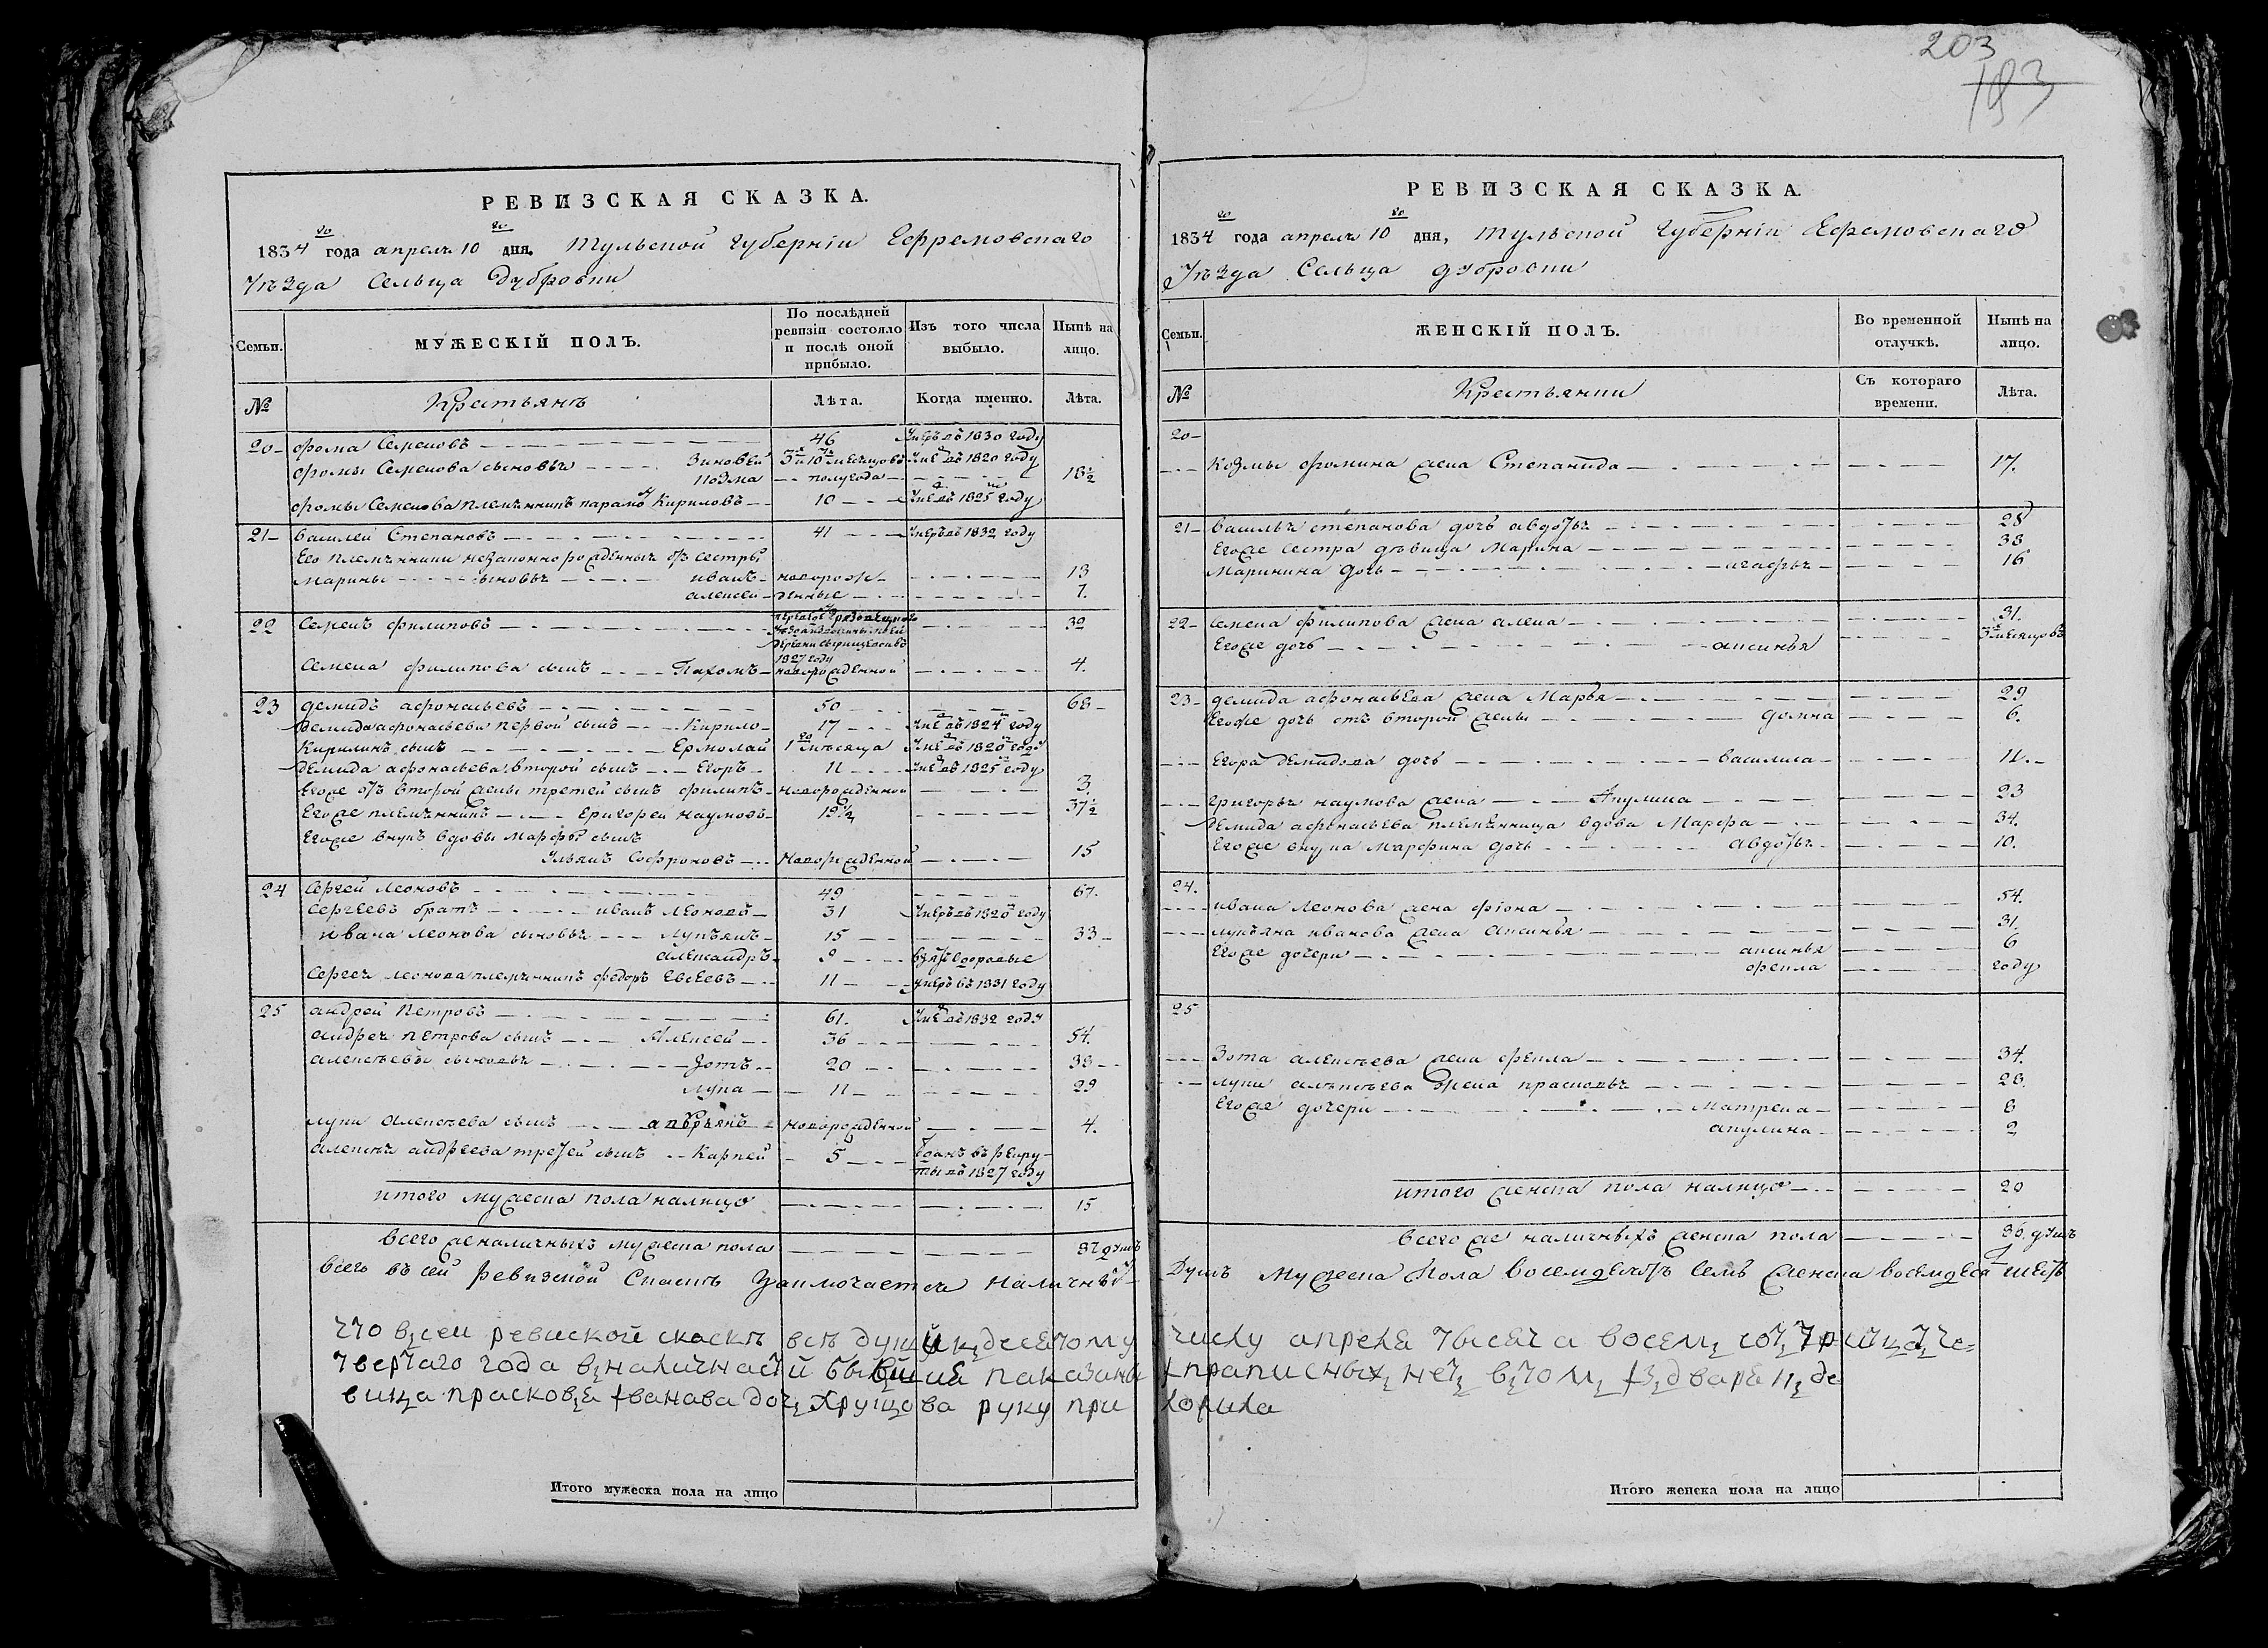 203
193
РЕВИЗСКАЯ СКАЗКА.
1834го года апреля 10го дня, Тульской губернiи Ефремовскаго
Уѣзда Сельца Дубровки
Семьи. МУЖЕСКIЙ ПОЛЪ. По послѣдней ревизiи состояло и послѣ оной прибыло. Изъ того числа выбыло. Нынѣ на лицо.
№ Крестьянъ Лѣта. Когда именно. Лѣта.
20 фома Семеновъ 46 Умеръ въ 1830 году
фомы Семенова сыновья Зиновей 3 и 10 месяцовъ Уме въ 1820 году
Козма полугода 18½
фомы Семенова племянникъ Кириловъ 10 Уме въ 1825 году
21 василей Степановъ 41 Умеръ въ 1832 году
Его племянники незаконно рожденныя отъ сестры
Марины сыновья иванъ новорож 13
алексей денные 7.
22 Семенъ филиповъ 1827 году 32
Семена филипова сынъ Пахомъ новорожденной 4.
23 демидъ афонасьевъ 50 68
демида афонасьева первой сынъ Кирило 17 Уме въ 1824 году
Кирилинъ сынъ Ермолай 1го месяца Уме въ 1820 году
демида афонасьева второй сынъ Егоръ 11 Уме въ 1825 году
Егоже отъ второй жены третей сынъ филипъ новорожденной 3.
Егоже племянникъ Григорей наумовъ 19½ 37½
Егоже внукъ вдовы Марфы сынъ
Ульянъ Софроновъ Новорожденной 15
24 Сергей Леоновъ 49 67.
Сергеевъ братъ иванъ Леоновъ 31 Умеръ въ 1820 году
ивана Леонова сыновья лукъянъ 15 33
александръ 9 взятъ
Сергея леонова племянникъ федоръ Евсеевъ 11 умеръ въ 1831 году
25 андрей Петровъ 61. Уме въ 1832 году
андрея петрова сынъ Алексей 36 54.
алексѣевы сыновья Зотъ 20 38
лупа 11 29
лупы алексѣева сынъ новорожденной 4.
алексѣя андреева третей сынъ Карпей 5 отданъ въ рекру-
ты въ 1827 году
итого мужеска пола налицо 15
всего же наличныхъ мужеска пола 87 душъ
всего въ сей ревизской Сказкѣ Заключается наличныхъ
Итого мужеска пола на лицо
РЕВИЗСКАЯ СКАЗКА.
1834го года апреля 10го дня, Тульской губернiи Ефремовскаго
Уѣзда Сельца дубровки
Семьи. ЖЕНСКIЙ ПОЛЪ. Во временной отлучкѣ. Нынѣ на лицо.
№ Крестьянки Съ котораго времени. Лѣта.
20
Козмы фомина жена Степанида 17.
21 василья степанова дочь авдотья 28
Егоже сестра дѣвица Марина 38
Маринина дочь агафья 16
22 семена филипова жена алена 31.
Егоже дочь аксинья 3 месяцовъ
23 демида афонасьева жена Марья 29
Егоже дочь отъ второй жены домна 6.
Егора демидова дочь василиса 11.
григорья наумова жена Акулина 23
демида афонасьева племянница вдова Марфа 34.
Егоже внука Марфина дочь авдотья 10.
24.
ивана леонова жена фiона 54.
лукъяна иванова жена аксинья 31.
Егоже дочери аксинья 6
фекла году
25
Зота алексѣева жена фекла 34.
лупы алексѣева жена прасковья 28.
Егоже дочери Матрена 8
акулина 2
итого женска пола налицо 20
всего же наличныхъ женска пола 86. душъ
Душъ мужеска пола восемдесятъ семь женска восемдесятъ шесть
что вцсеи ревиской скаскѣ всѣ души кцдесятому числу апреля тысяча восемц сотц трицатц че=
твертаго года вцналичнасти бывшие паказаны прапиcныхц нетц вцтомц
вица прасковця ивaнава дочц Хрущова руку при ложила
Итого женска пола на лицо